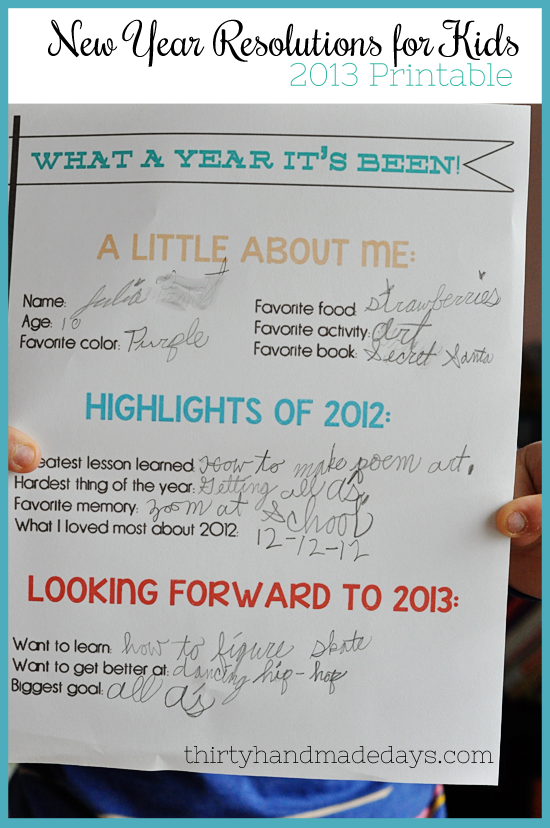 New Year Resolutions for Kids
2013 Printable
WHAT A YEAR IT'S BEEN!
A LITTLE ABOUT ME:
Name: Julia
Age: 10
Favorite color: Purple
Favorite food: strawberries
Favorite activity: art
Favorite book: Secret Santa
HIGHLIGHTS OF 2012:
eatest lesson learned: How to make poem art.
Hardest thing of the year: Getting all a's
Favorite memory: zoom at School
What I loved most about 2012: 12-12-12
LOOKING FORWARD TO 2013:
Want to learn: how to figure skate
Want to get better at: dancing hip-hop
Biggest goal: all a's
thirtyhandmadedays.com